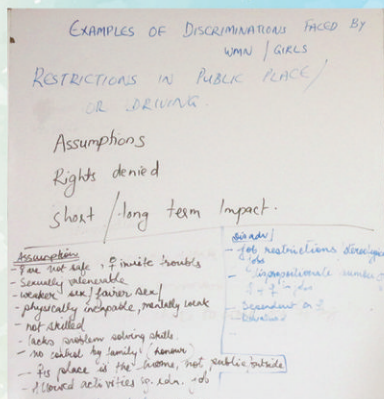 EXAMPLES OF DISCRIMINATIONS FACED BY
WMN / GIRLS
RESTRICTIONS IN PUBLIC PLACE /
OR DRIVING.
Assumptions
Rights denied
Short / long term Impact.
Assumption
- ♀ are not safe, ♀ invite troubls
- Sexually vulenerable
- weaker sex / fairer sex /
- physically incapable, mentally weak
- not skilled
- lacks problem solving skills.
- no control by family (honour)
- ♀s place is the home, not public/outside
- Allowed activities eg. edn. job
Disadv /
- Job restrictions
jobs
- Disproportionate number
♀ & ♂ in jobs
- Dependent on
- Devalued